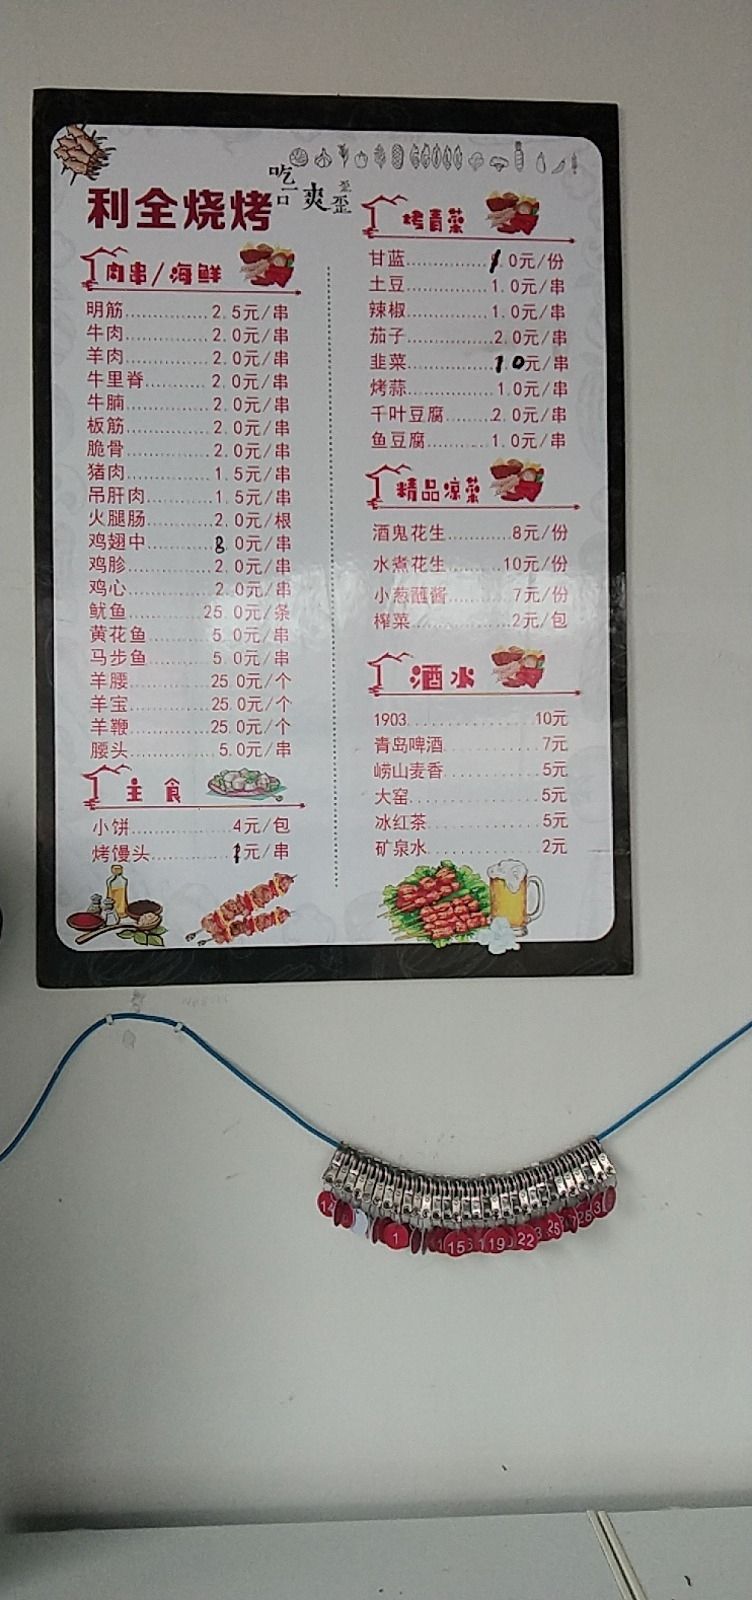 吃一口 爽歪歪
利全烧烤
肉串/海鲜
明筋................2.5元/串
牛肉................2.0元/串
羊肉................2.0元/串
牛里脊..........2.0元/串
牛腩................2.0元/串
板筋................2.0元/串
脆骨................2.0元/串
猪肉................1.5元/串
吊肝肉..........1.5元/串
火腿肠..........2.0元/根
鸡翅中..........8.0元/串
鸡胗................2.0元/串
鸡心................2.0元/串
鱿鱼..............25.0元/条
黄花鱼..........5.0元/串
马步鱼..........5.0元/串
羊腰..............25.0元/个
羊宝..............25.0元/个
羊鞭..............25.0元/个
腰头................5.0元/串
主食
小饼................4元/包
烤馒头............1元/串
烤青菜
甘蓝................1.0元/份
土豆................1.0元/串
辣椒................1.0元/串
茄子................2.0元/串
韭菜................1.0元/串
烤蒜................1.0元/串
千叶豆腐........2.0元/串
鱼豆腐............1.0元/串
精品凉菜
酒鬼花生............8元/份
水煮花生..........10元/份
小葱蘸酱............7元/份
榨菜..................2元/包
酒水
1903..................10元
青岛啤酒..............7元
崂山麦香..............5元
大窑....................5元
冰红茶................5元
矿泉水................2元
14 1 15 19 22